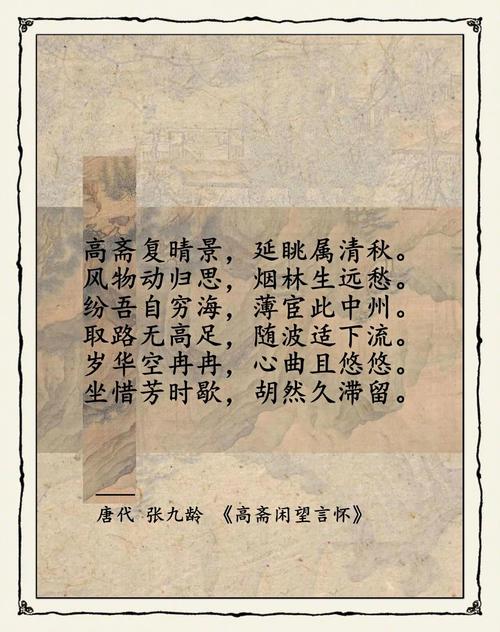 高斋复晴景，延眺属清秋。
风物动归思，烟林生远愁。
纷吾自穷海，薄宦此中州。
取路无高足，随波适下流。
岁华空冉冉，心曲且悠悠。
坐惜芳时歇，胡然久滞留。
唐代 张九龄 《高斋闲望言怀》